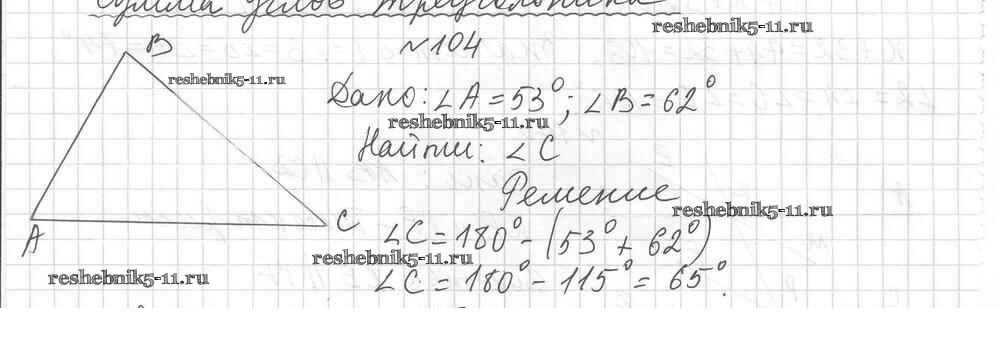 Сумма углов треугольника
reshebnik5-11.ru
№104
B
reshebnik5-11.ru
Дано: ∠A = 53°; ∠B = 62°
reshebnik5-11.ru
Найти: ∠C
Решение
reshebnik5-11.ru
A
C
∠C = 180° - (53° + 62°)
reshebnik5-11.ru
∠C = 180° - 115° = 65°.
reshebnik5-11.ru